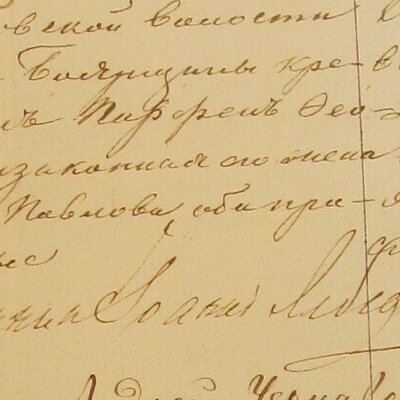 вской волости
Боярщины кре-
нъ Парфенъ Ѳео-
законная его жена
Павлова, оба пра-
ые
Іоаннъ
Черно